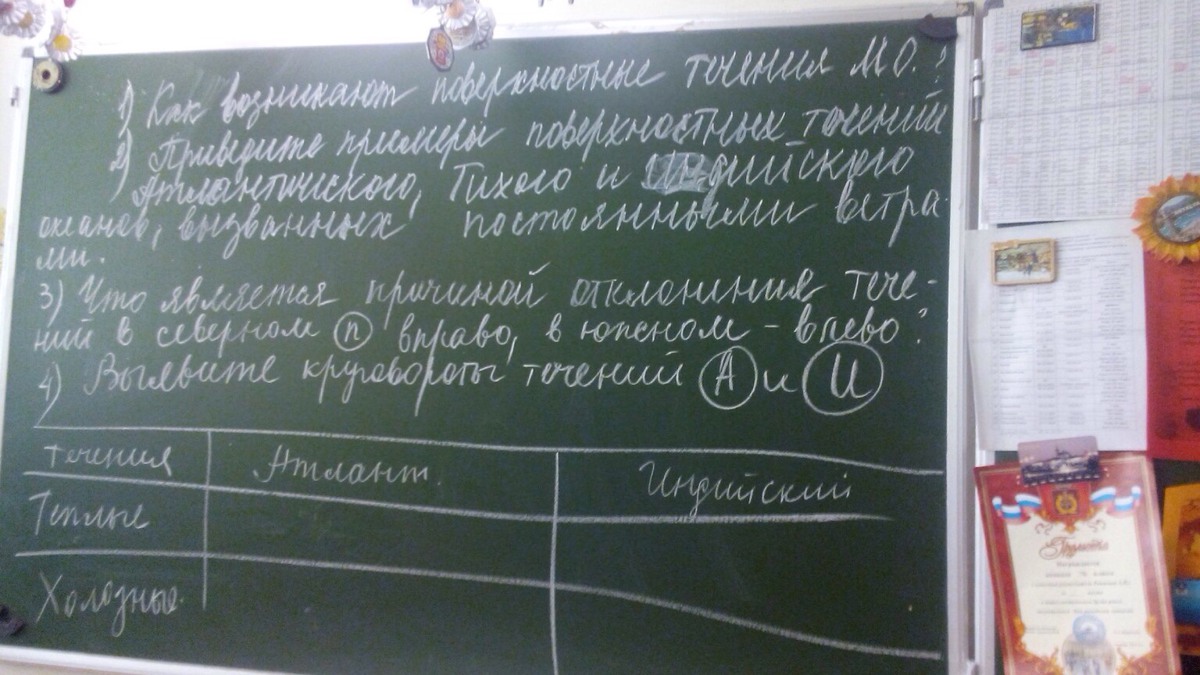 1) Как возникают поверхностные течения М О.?
2) Приведите примеры поверхностных течений
Атлантического, Тихого и Индийского
океанов, вызванных постоянными ветра-
ми.
3) Что является причиной отклонения тече-
ний в северном п вправо, в южном - влево?
4) Выявите круговороты течений А и И
течения Атлант. Индийский
Теплые
Холодные.
Грамота